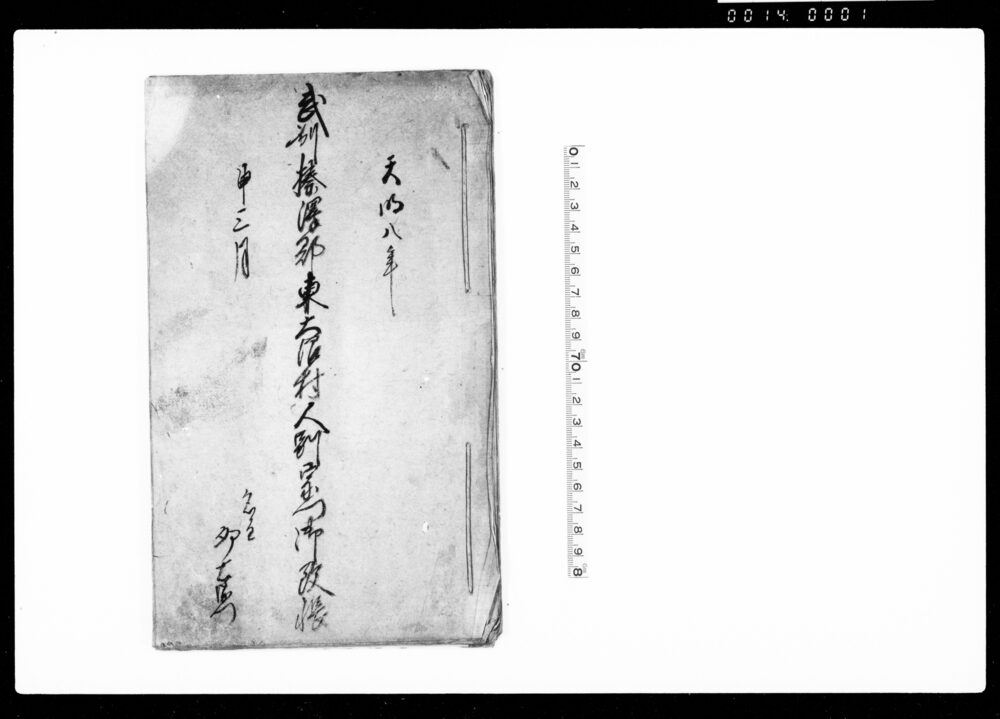 0014 0001
天明八年
武刕榛澤郡東大沼村人別宗門御改帳
申三月
名主
0 1 2 3 4 5 6 7 8 9 70 1 2 3 4 5 6 7 8 9 8